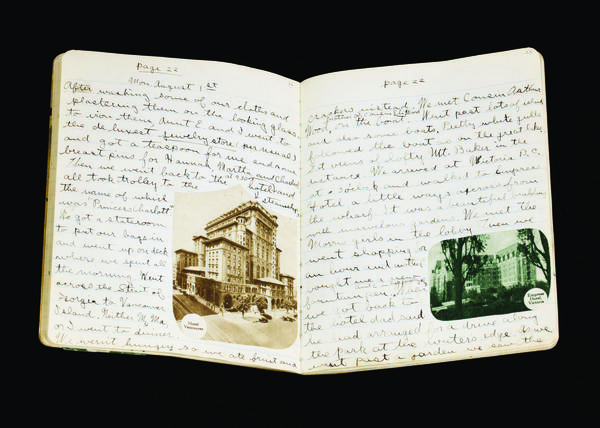 page 22
Mon. August 1st
After washing some of our cloths and
plastering them on the looking glass
to iron them, Aunt E. and I went to
the de luxest jewelry store (as usual)
and got a teaspoon for me and some
breast pins for Hannah, Martha, and Charlot
Then we went back to the hotel and
at 9:30
all took trolley to the steamship
the name of which
was Princess Charlott
We got a stateroom
to put our bags in
and went up on deck
where we spent all
the morning. Went
across the Strait of
Georgia to Vancouver
Island. Neither M, Ma
or I went to dinner.
We weren't hungry so we ate fruit and
Hotel
Vancouver
page 22
crackers instead. We met Cousin Arthur
Wood, on the boat. Went past lots of isles
and also some boats. Pretty white gulls
followed the boat as on the great lakes.
Got views of lofty Mt. Baker in the
distance. We arrived at Victoria B.C.
at 2 o'clock and walked to Empress
Hotel a little ways across from
the wharf. It was a beautiful building
with marvelous gardens. We met the
Morris girls in the lobby. Then we
went shopping for
an hour and
bought
fountain pen. When
we got back to
the hotel dad said
he had arranged for a drive along
the park at the waters edge. As we
went past a garden we saw the
Empress
Hotel,
Victoria